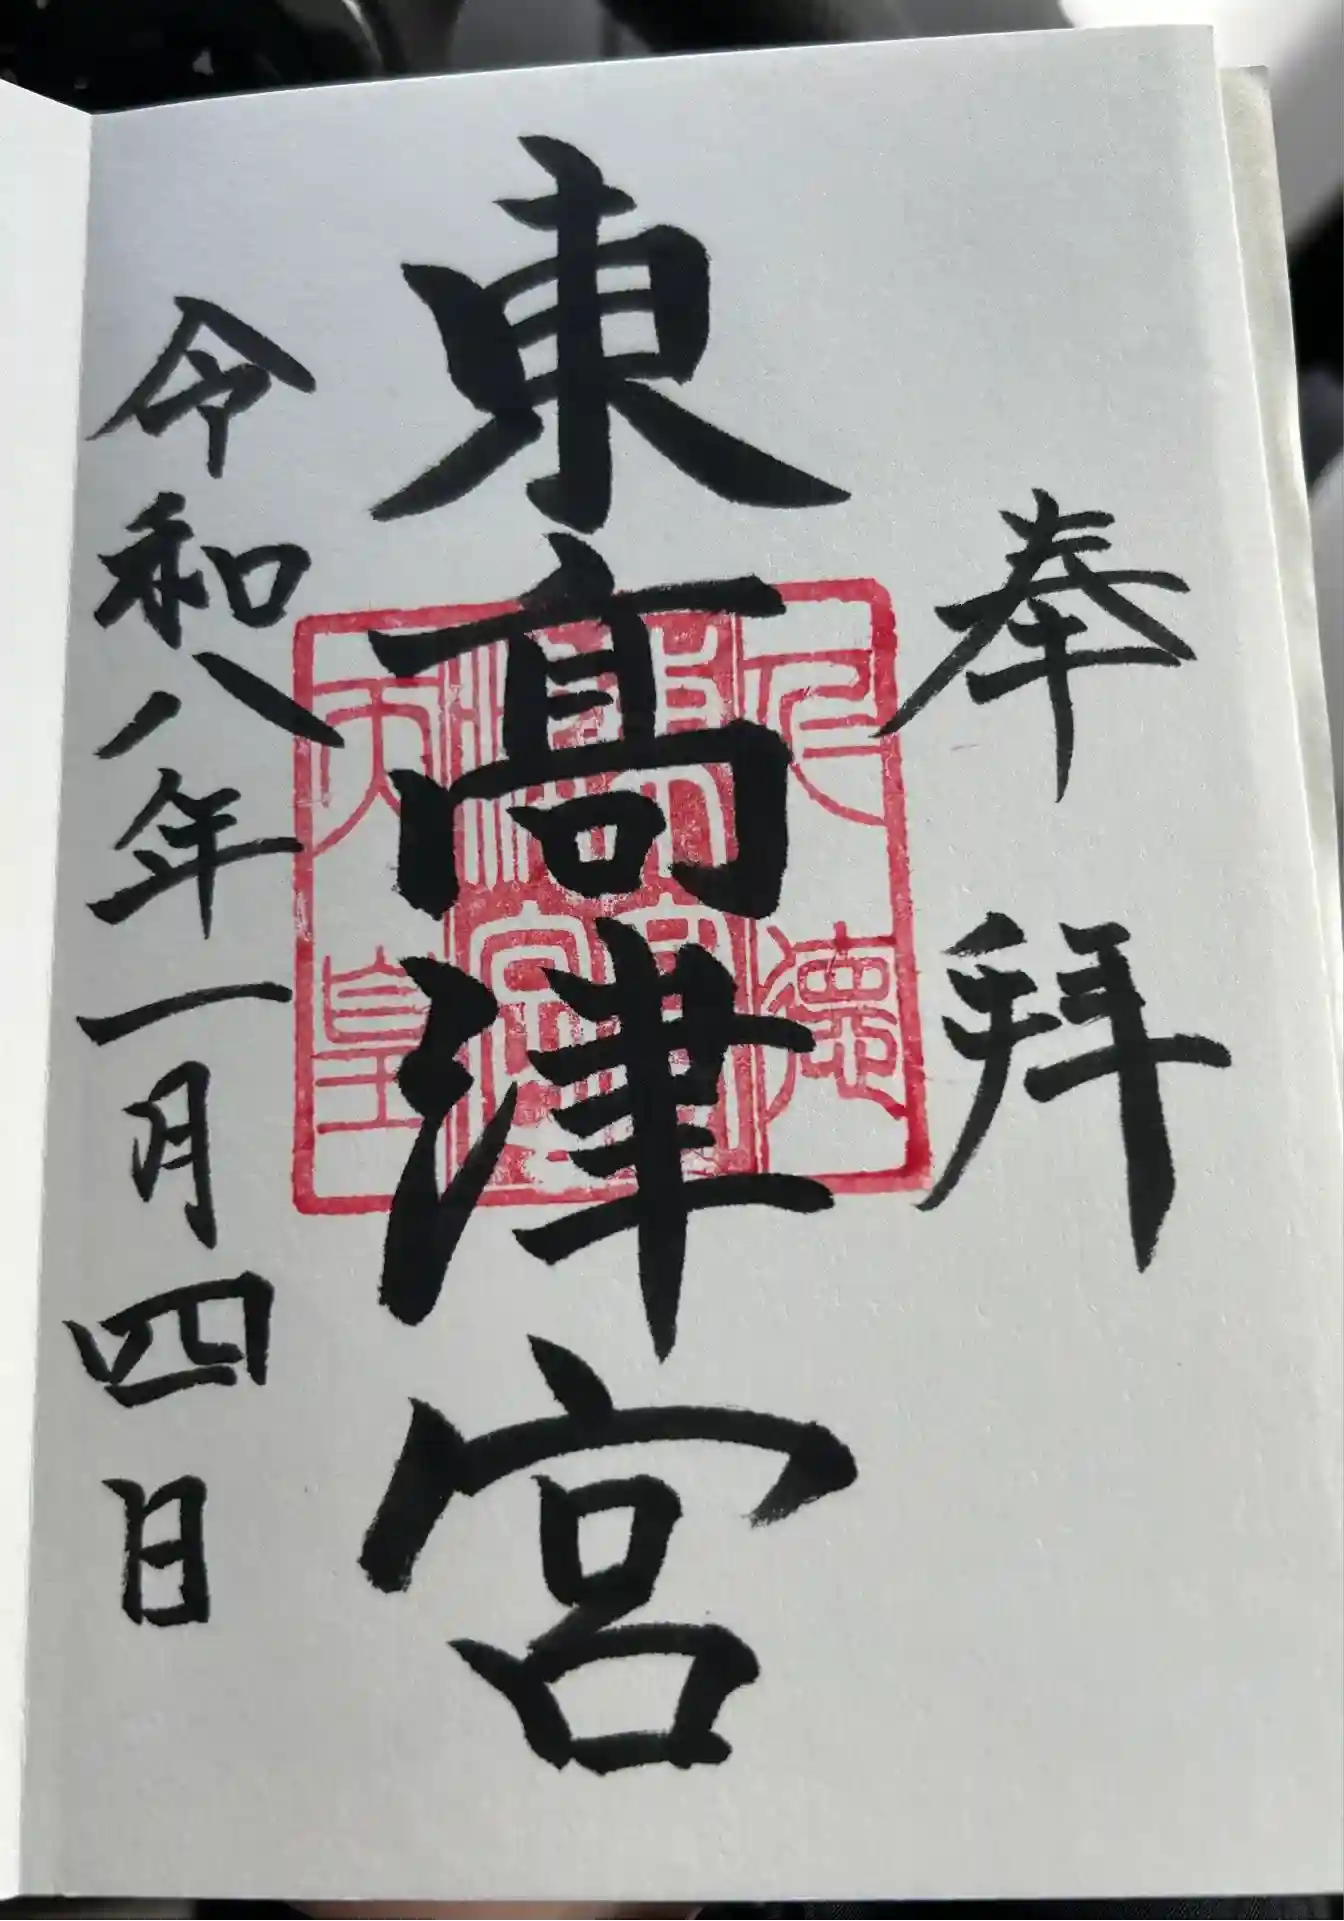 奉拝
東高津宮
仁徳
天皇
令和八年一月四日